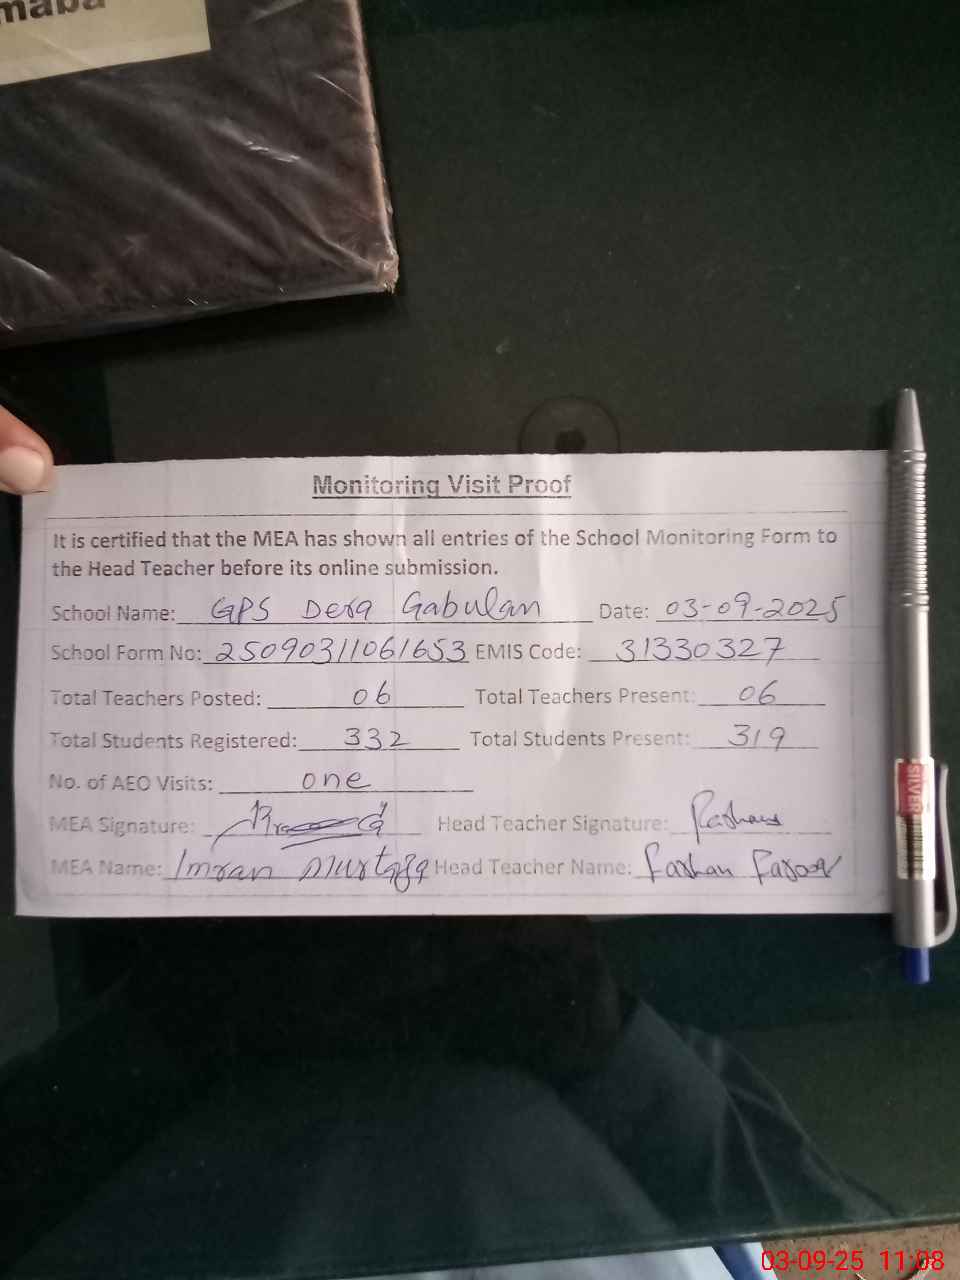 maba
Monitoring Visit Proof
It is certified that the MEA has shown all entries of the School Monitoring Form to
the Head Teacher before its online submission.
School Name: GPS Dera Gabulan Date: 03-09-2025
School Form No: 25090311061653 EMIS Code: 31330327
Total Teachers Posted: 06 Total Teachers Present: 06
Total Students Registered: 332 Total Students Present: 319
No. of AEO Visits: one
MEA Signature: Head Teacher Signature:
MEA Name: Imran Murtaza Head Teacher Name: Farhan Farooq
SILVER
03-09-25 11:08